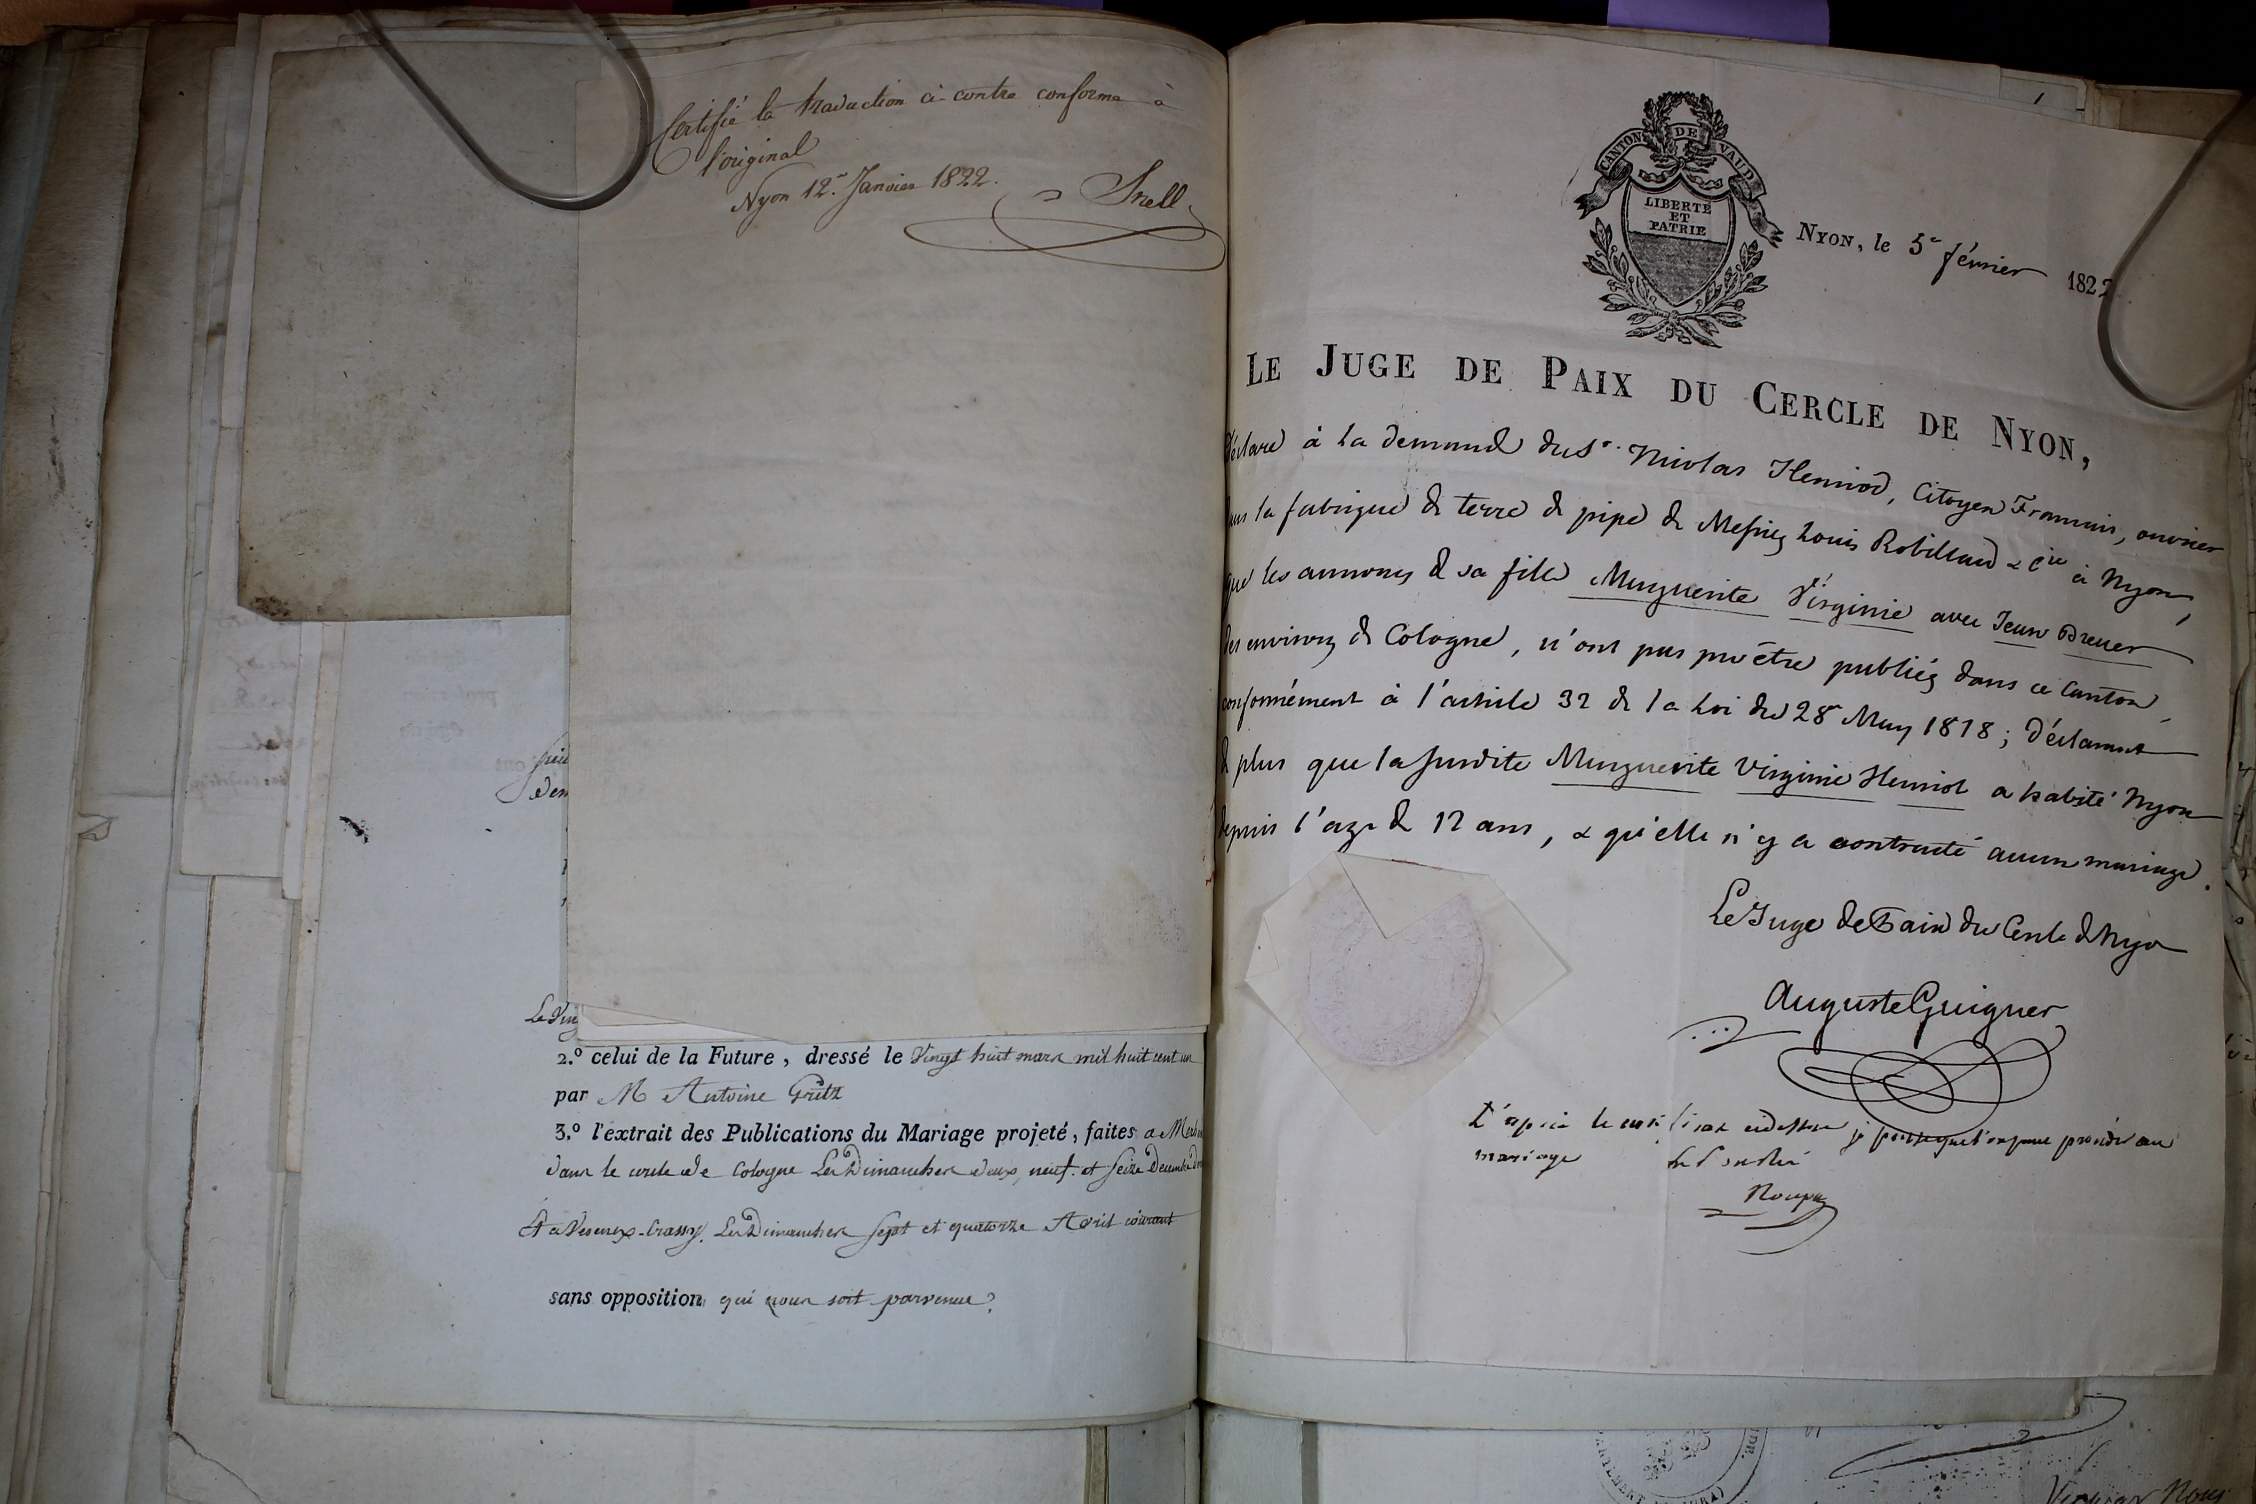 Certifié la traduction ci-contre conforme à
l'original
Nyon 12e. Janvier 1822.
Snell
2.º celui de la Future, dressé le Vingt huit mars mil huit cent un
par M Antoine
3.º l'extrait des Publications du Mariage projeté, faites a
dans le cercle de Cologne Les Dimanches deux, neuf et seize Decembre
Et a Vesenex-Crassy, Les Dimanches sept et quatorze Avril courant
sans opposition qui nous soit parvenue.
CANTON DE VAUD
LIBERTÉ
ET
PATRIE
NYON, le 5e février 1822
LE JUGE DE PAIX DU CERCLE DE NYON,
déclare à la demande du Sr. Nicolas Henriod, Citoyen Francais, ouvrier
dans la fabrique de terre de pipe de Messrs Louis Robillard & Cie à Nyon,
que les annonces de sa fille Marguerite Virginie avec Jean Breuer
des environs de Cologne, n'ont pas pu être publiés dans ce Canton,
conformément à l'article 32 de la Loi du 28e May 1818; déclarant
de plus que la susdite Marguerite Virginie Henriot a habité Nyon
depuis l'age de 12 ans, & qu'elle n'y a contracté aucun mariage.
Le Juge de Paix du Cercle de Nyon
Auguste Guiguer
D'après le certificat cidessus je pense que l'on peut procéder au
mariage